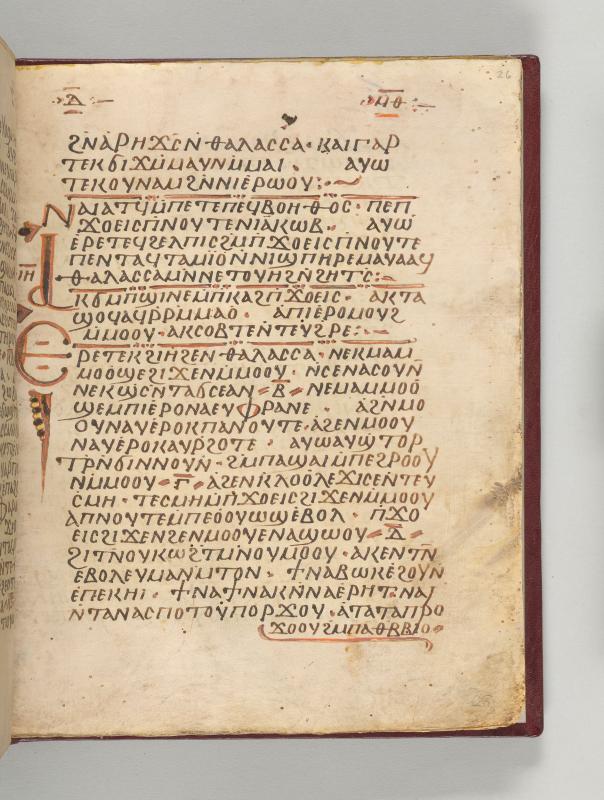 Ⲇ ⲘⲐ
26
ϨⲚⲀⲢⲎϪⲤⲚ ⲐⲀⲖⲀⲤⲤⲀ · ⲔⲀⲒⲄⲀⲢ
ⲦⲈⲔϬⲒϪⲘⲘⲀⲨⲚⲘⲘⲀⲒ · ⲀⲨⲰ
ⲦⲈⲔⲞⲨⲚⲀⲘϨⲚⲚⲒⲈⲢⲰⲞⲨ :
ⲚⲀⲒⲀⲦϤⲘⲠⲈⲦⲈⲠⲈϤⲂⲞⲎⲐⲞⲤ · ⲠⲈⲠ
ϪⲞⲈⲒⲤⲠⲚⲞⲨⲦⲈⲚⲒⲀⲔⲰⲂ · ⲀⲨⲰ
ⲈⲢⲈⲦⲈϤϨⲈⲖⲠⲒⲤϨⲘⲠϪⲞⲈⲒⲤⲠⲚⲞⲨⲦⲈ
ⲠⲈⲚⲦⲀϤⲦⲀⲘⲒⲞⲚⲚⲒⲰⲠⲎⲢⲈⲘⲀⲨⲀⲀϤ
ⲒⲎ
ⲐⲀⲖⲀⲤⲤⲀⲘⲚⲚⲈⲦⲞⲨⲎϨⲚϨⲎⲦⲤ :
ⲔϬⲘⲠϢⲒⲚⲈⲘⲠⲔⲀϨⲠϪⲞⲈⲒⲤ · ⲀⲔⲦⲀ
ϢⲞϤⲀϤⲢⲢⲘⲘⲀⲞ · ⲀⲠⲒⲈⲢⲞⲘⲞⲨϨ
ⲘⲘⲞⲞⲨ · ⲀⲔⲤⲞⲂⲦⲈⲚⲦⲈⲨϨⲢⲈ :
ⲈⲢⲈⲦⲈⲔϨⲒⲎϨⲈⲚ ⲐⲀⲖⲀⲤⲤⲀ · ⲚⲈⲔⲘⲀⲘ
ⲘⲞⲞϢⲈϨⲒϪⲈⲚⲘⲘⲞⲞⲨ · ⲚⲤⲈⲚⲀⲤⲞⲨⲚ
ⲚⲈⲔⲰⲤⲚⲦⲀϬⲤⲈⲀⲚ Ⲃ ⲚⲈⲘⲀⲘⲘⲞⲞ
ϢⲈⲘⲠⲒⲈⲢⲞⲚⲀⲈⲨⲪⲢⲀⲚⲈ · ⲀϨⲚⲘⲞ
ⲞⲨⲚⲀⲨⲈⲢⲞⲔⲠⲀⲚⲞⲨⲦⲈ · ⲀϨⲈⲚⲘⲞⲞⲨ
ⲚⲀⲨⲈⲢⲞⲔⲀⲨⲢϨⲞⲦⲈ · ⲀⲨⲰⲀⲨϢⲦⲞⲢ
ⲦⲢⲚϬⲒⲚⲚⲞⲨⲚ · ϨⲘⲠⲀϢⲀⲒⲘⲠⲈϨⲢⲞⲞⲨ
ⲚⲘⲘⲞⲞⲨ Ⲅ ⲀϨⲈⲚⲔⲖⲞⲞⲖⲈϪⲒⲤⲈⲚⲦⲈⲨ
ⲤⲘⲎ · ⲦⲈⲤⲘⲎⲘⲠϪⲞⲈⲒⲤϨⲒϪⲈⲚⲘⲘⲞⲞⲨ
ⲀⲠⲚⲞⲨⲦⲈⲘⲠⲈⲞⲞⲨⲰϢⲈⲂⲞⲖ · ⲠϪⲞ
ⲈⲒⲤϨⲒϪⲈⲚϨⲈⲚⲘⲞⲞⲨⲈⲚⲀϢⲰⲞⲨ Ⲇ
ϨⲒⲦⲚⲞⲨⲔⲰϨⲦⲘⲚⲞⲨⲘⲞⲞⲨ · ⲀⲔⲈⲚⲦⲚ
ⲈⲂⲞⲖⲈⲨⲘⲀⲚⲘⲦⲞⲚ · ϮⲚⲀⲂⲰⲔⲈϨⲞⲨⲚ
ⲈⲠⲈⲔⲎⲒ · ϮⲚⲀϮⲚⲀⲔⲚⲚⲀⲈⲢⲎⲦ · ⲚⲀⲒ
ⲚⲦⲀⲚⲀⲤⲠⲞⲦⲞⲨⲠⲞⲢϪⲞⲨ · ⲀⲦⲀⲦⲀⲠⲢⲞ
ϪⲞⲞⲨϨⲘⲠⲀⲐⲂⲂⲒⲞ